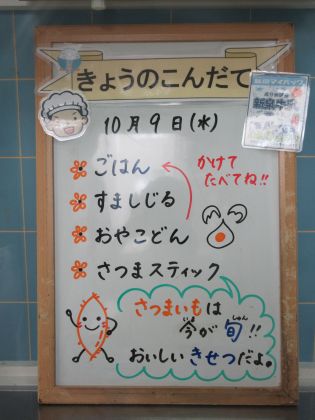 きょうのこんだて
10月9日(水)
ごはん
かけて
たべてね!!
すましじる
おやこどん
さつまスティック
さつまいもは
今が旬!!
しゅん
おいしいきせつだよ。